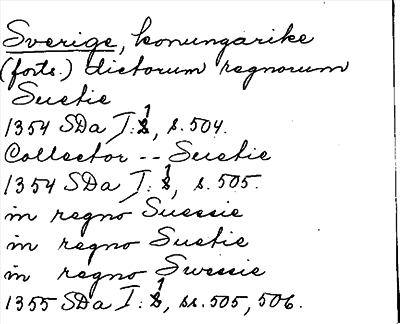 Sverige, konungarike
(forts.) dictorum regnorum
Suetie
1354 SDa I:1, s. 504.
Collector -- Suetie
1354 SDa I:1, s. 505.
in regno Suessie
in regno Suetie
in regno Swessie
1355 SDa I:1, ss. 505, 506.